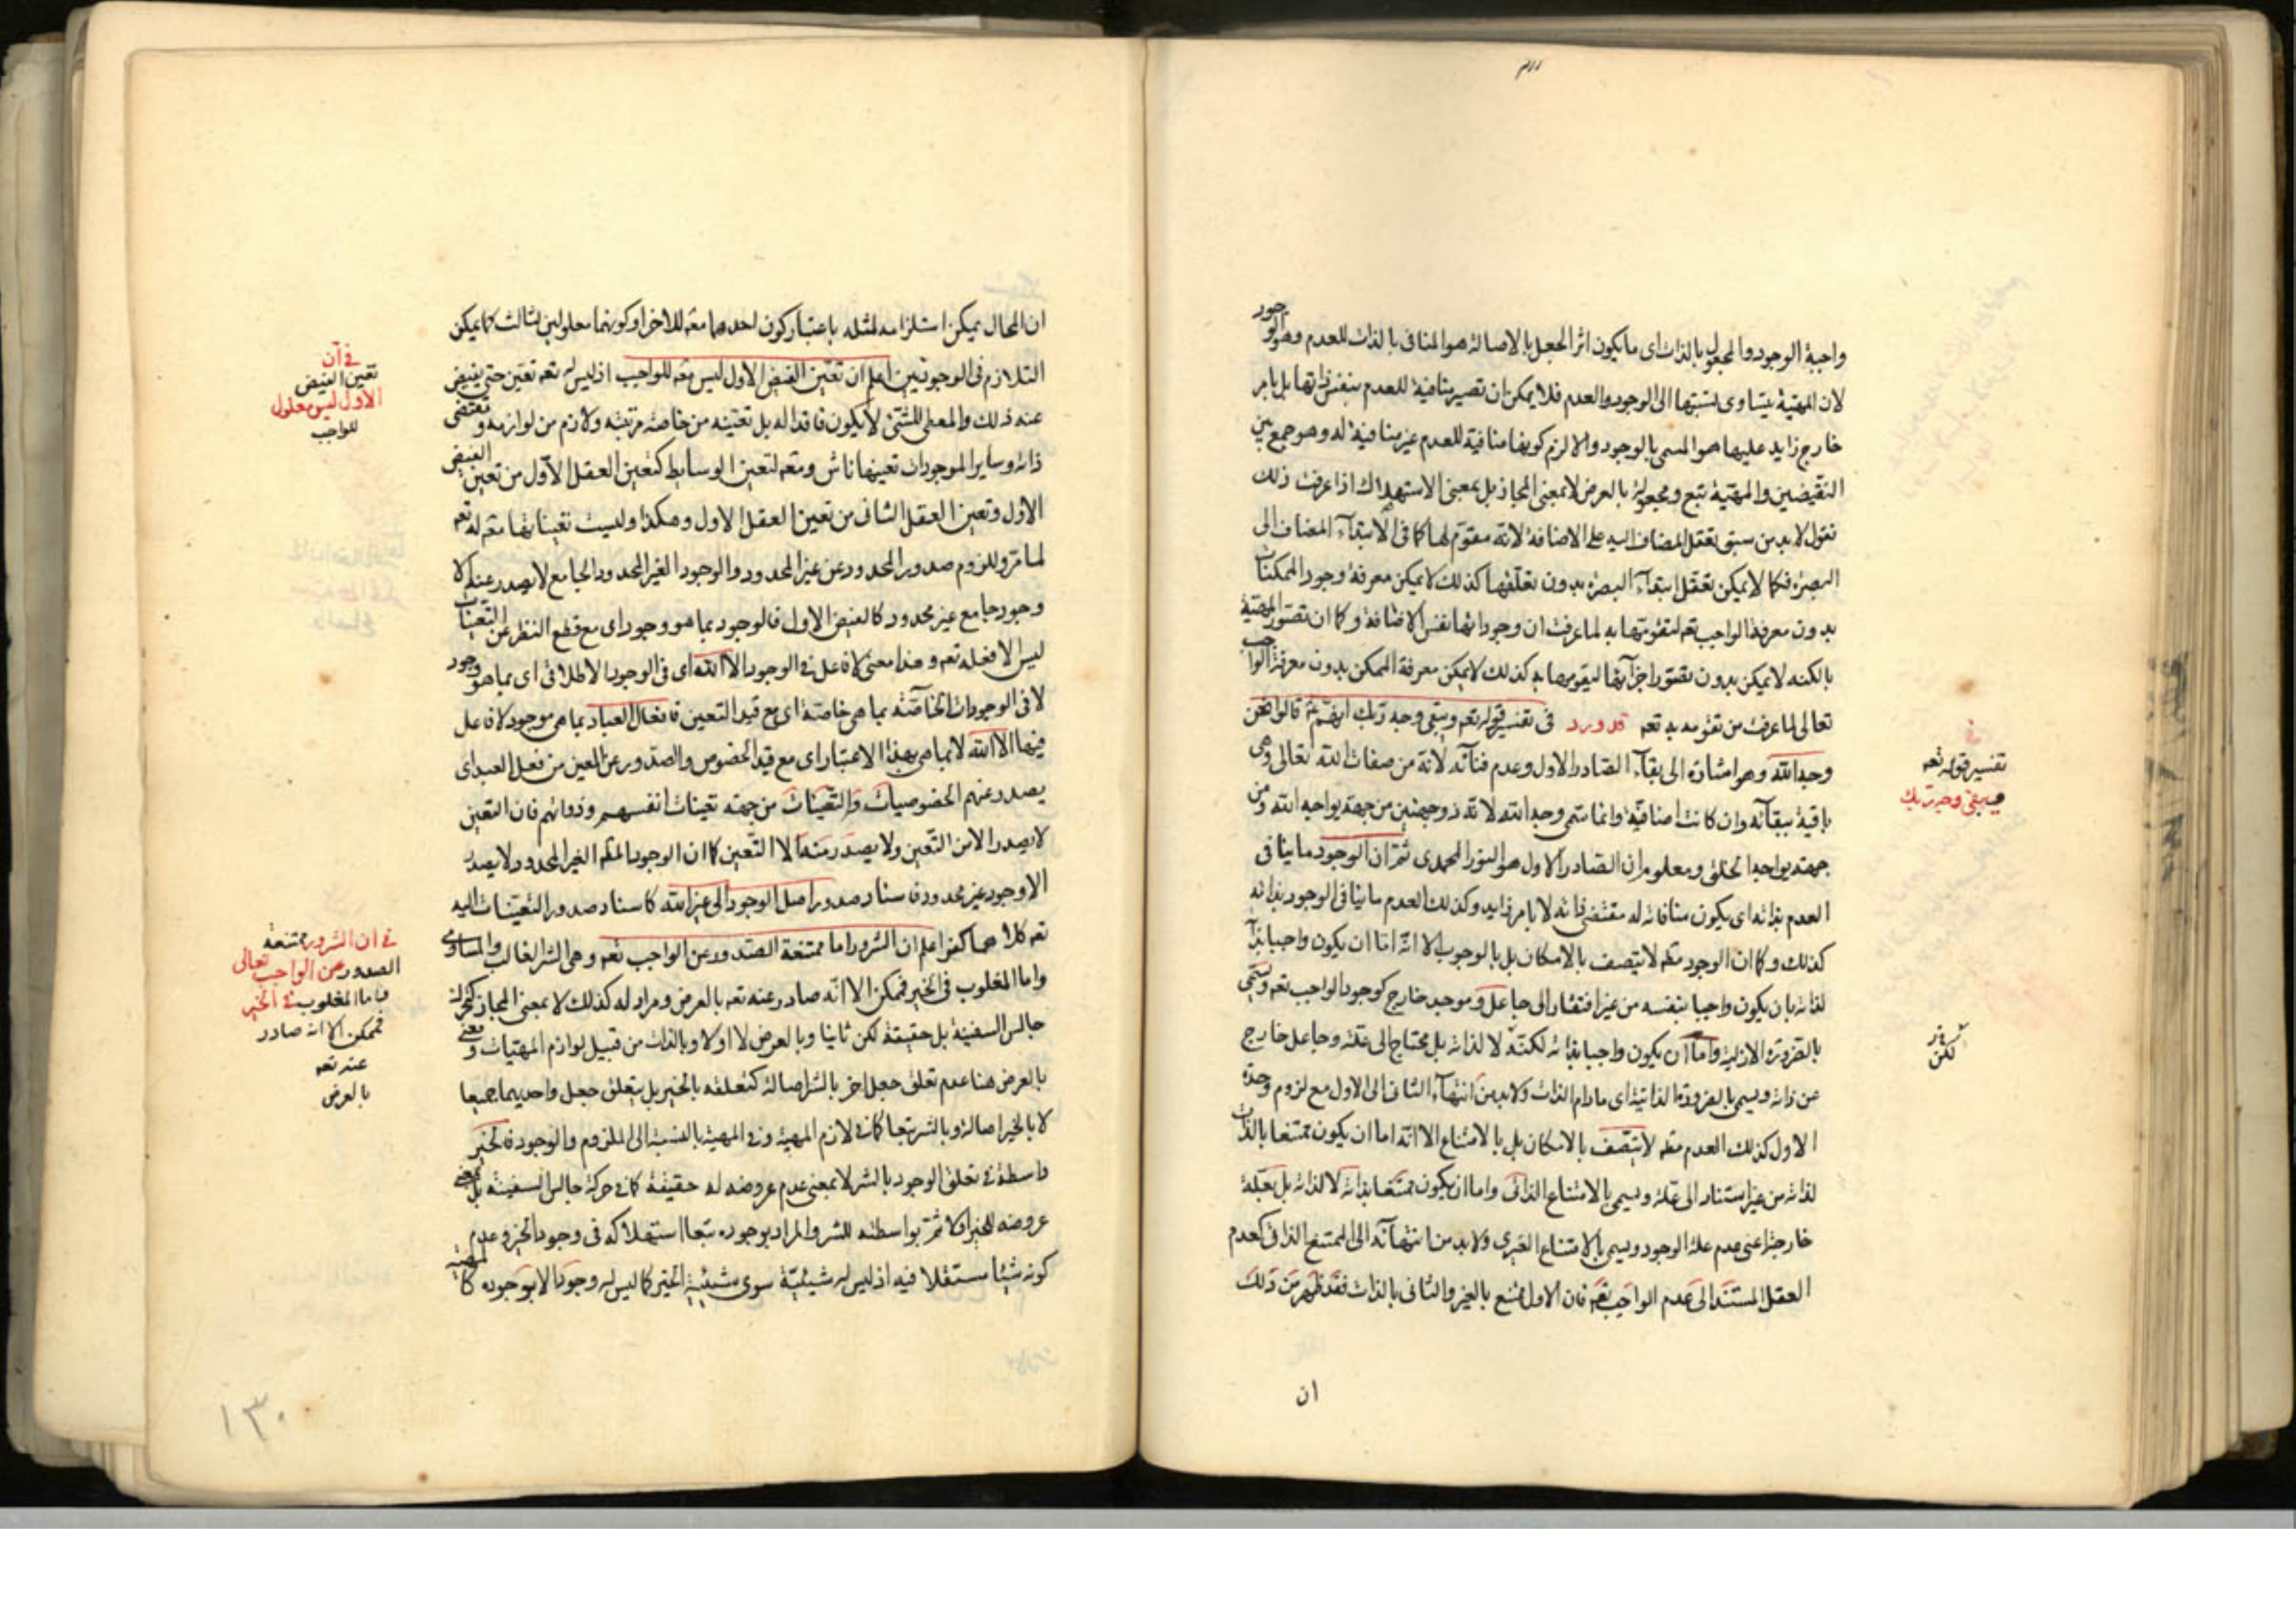 واجبة الوجود والمجعول بالذات اى ما يكون اثر الجعل بالاصالة هو المنافى بالذات للعدم وهو الوجود
لان المهية يتساوى نسبتها الى الوجود والعدم فلا يمكن ان تصير منافية للعدم بنفس ذاتها بل بامر
خارج زايد عليها هو المسمى بالوجود والا لزم كونها منافية للعدم غير منافية له وهو جمع بين
النقيضين والمهية تتبع ومجعولة بالعرض لا بمعنى المجاز بل بمعنى الاستهلاك اذا عرفت ذلك
نقول لابد من سبق تعقل المضاف اليه على الاضافة لانه مقوم لها كما فى الابتدآء المضاف الى
البصرة فكما لا يمكن تعقل ابتدآء البصرة بدون تعقلها كذلك لا يمكن معرفة وجود الممكنات
بدون معرفة الواجب تعم لتقومها به لما عرفت ان وجوداتها نفس الاضافة وكما ان تصور المهية
بالكنه لا يمكن بدون تصور اجزآئها ليقومها به كذلك لا يمكن معرفة الممكن بدون معرفة الواجب
تعالى لما عرفت من تقومه به تعم قد ورد فى تفسير قوله تعم ويبقى وجه ربك انهم قالوا نحن
وجه الله وهو اشارة الى بقآء الصادر الاول وعدم فنآئه لانه من صفات الله تعالى وهى
باقية ببقآئه وان كانت اضافية وانما سمى وجه الله لانه ذو وجهين من جهة يواجه الله ومن
جهة يواجه الخلق ومعلوم ان الصادر الاول هو النور المحمدى ثم ان الوجود ما ينافى
العدم بذاته اى يكون منافاته له مقتضى ذاته لا بامر زايد وكذلك العدم ما ينافى الوجود بذاته
كذلك وكما ان الوجود مثله لا يتصف بالامكان بل بالوجوب الا انه اما ان يكون واجبا بذاته
لذاته بان يكون واجبا بنفسه من غير افتقار الى جاعل وموجد خارج كوجود الواجب تعم ويسمى
بالضرورة الازلية واما ان يكون واجبا بذاته لكنه لا لذاته بل محتاج الى علة وجاعل خارج
عن ذاته ويسمى بالضرورة الذاتية اى مادام الذات ولابد من انتهآء الثانى الى الاول مع لزوم وحدة
الاول كذلك العدم مثله لا يتصف بالامكان بل بالامتناع الا انه اما ان يكون ممتنعا بالذات
لذاته من غير استناد الى علة ويسمى بالامتناع الذاتى واما ان يكون ممتنعا بذاته لا لذاته بل بعلة
خارجة اعنى عدم علة الوجود ويسمى بالامتناع الغيرى ولابد من انتهآئه الى الممتنع الذاتى كعدم
العقل المستند الى عدم الواجب تعم فان الاول ممتنع بالغير والثانى بالذات فقد ظهر من ذلك
ان
فى
تفسير قوله تعم
ويبقى وجه ربك
ان المحال يمكن استلزامه لمثله باعتبار كون احدهما علة للاخر او كونهما معلولين لثالث كما يمكن
التلازم فى الوجوديين اعلم ان تعين الفيض الاول ليس معلولا للواجب اذ ليس له تعم تعين حتى يفيض
عنه ذلك والمعطى للشئ لا يكون فاقدا له بل تعينه من خاصة مرتبته ولازم من لوازمه ومقتضى
ذاته وساير الموجودات تعينها ناش ومعلول لتعين الوسايط كتعين العقل الاول من تعين الفيض
الاول وتعين العقل الثانى من تعين العقل الاول وهكذا وليست تعيناتها معلولة له تعم
لما مر وللزوم صدور المحدود عن غير المحدود والوجود الغير المحدود الجامع لا يصدر عنه الا
وجود جامع غير محدود كالفيض الاول فالوجود بما هو وجود اى مع قطع النظر عن التعينات
ليس الا فعله تعم وهذا معنى لا فاعل فى الوجود الا الله اى فى الوجود الاطلاقى اى بما هو وجود
لا فى الوجودات الخاصة بما هى خاصة اى مع قيد التعين فافعال العباد بما هى موجود لا فاعل
فيها الا الله لا بما هى بهذا الاعتبار اى مع قيد الخصوص والصدور عن المعين من فعل العبد اى
يصدر عنهم الخصوصيات والتعينات من جهة تعينات انفسهم وذواتهم فان التعين
لا يصدر الا من التعين ولا يصدر منه الا التعين كما ان الوجود المطلق الغير المحدود لا يصدر
الا وجود غير محدود فاسناد صدور اصل الوجود الى غير الله كاسناد صدور التعينات اليه
تعم كلاهما كفر اعلم ان الشرور اما ممتنعة الصدور عن الواجب تعم وهى الشر الغالب والمساوى
واما المغلوب فى الخير فممكن الا انه صادر عنه تعم بالعرض ومراد له كذلك لا بمعنى المجاز كحركة
جالس السفينة بل حقيقة لكن ثانيا وبالعرض لا اولا وبالذات من قبيل لوازم المهيات ومعنى
بالعرض هنا عدم تعلق جعل اخر بالشر اصالة كتعلقه بالخير بل يتعلق جعل واحد بهما جميعا
لا بالخير اصالة وبالشر تبعا كما فى لازم المهية وفى المهية بالنسبة الى الملزوم والوجود فالخير
واسطة فى تعلق الوجود بالشر لا بمعنى عدم عروضه له حقيقة كما فى حركة جالس السفينة بل بمعنى
عروضه للخير اولا ثم بواسطته للشر والمراد بوجوده تبعا استهلاكه فى وجود الخير وعدم
كونه شيئا مستقلا فيه اذ ليس له شيئية سوى شيئية الخير كما ليس له وجود الا بوجوده كما المهية
فى ان
تعين الفيض
الاول ليس معلول
للواجب
فى ان الشرور ممتنعة
الصدور عن الواجب تعالى
واما المغلوب فى الخير
فممكن الا انه صادر
عنه تعم
بالعرض
١٣٠